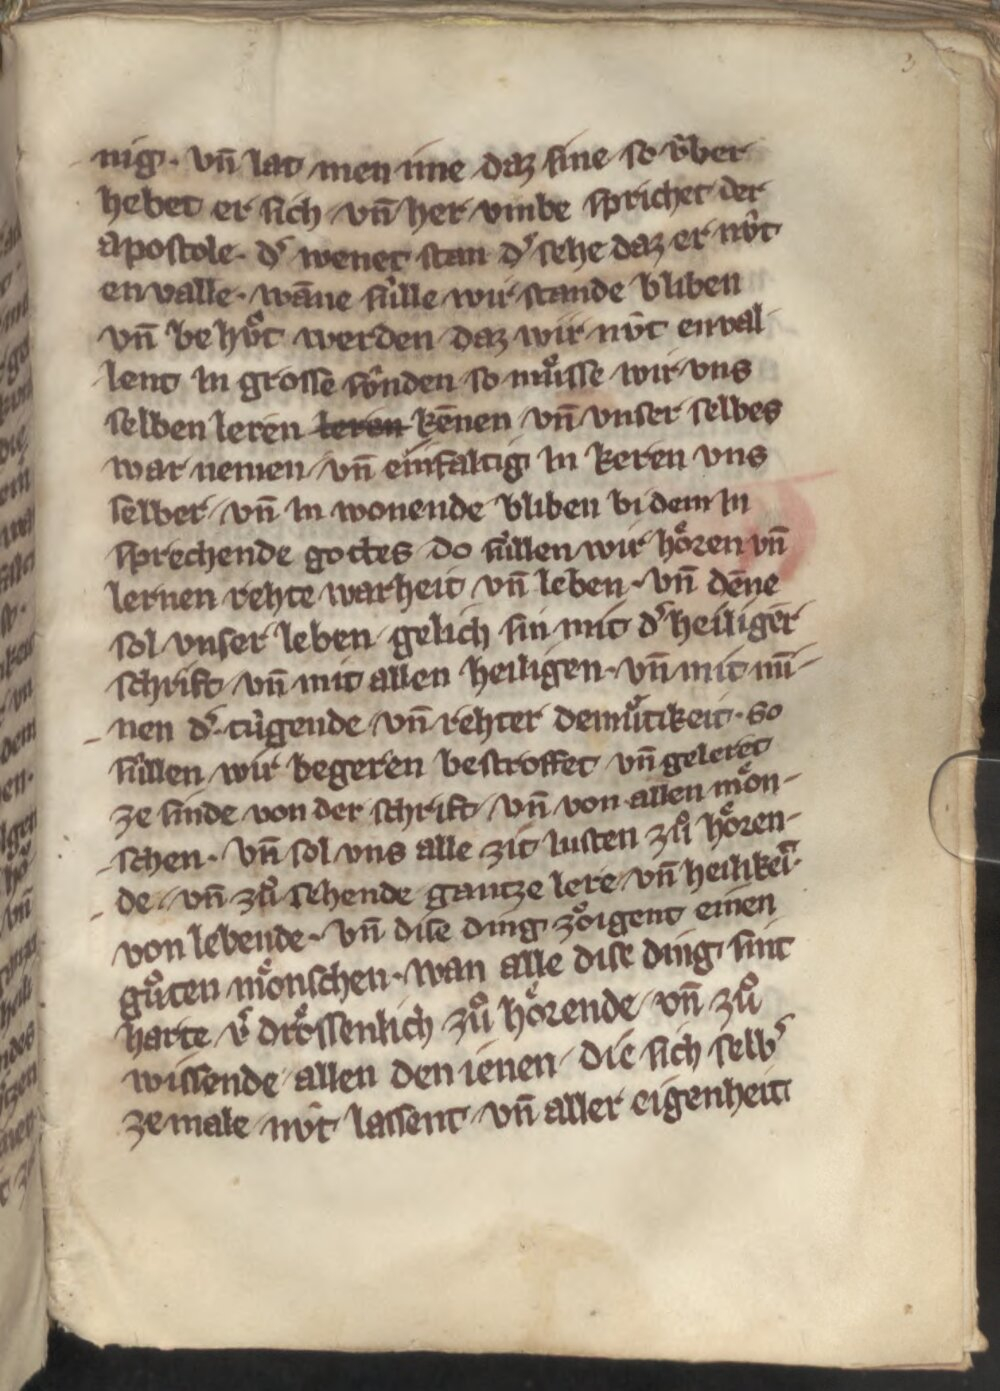 nig · vn̄ lat men ime daz sine so v́ber
hebet er sich vn̄ her vmbe sprichet der
apostole · dˢ wenet stan dˢ sehe daz er nv́t
en valle · wāne súlle wir stande bliben
vn̄ be hv̊t werden daz wir nv́t enval
lent in grosse sv́nden so mu̍sse wir vns
selben leren leren kēnen vn̄ vnser selbes
war nemen vn̄ einfaltig in keren vns
selber vn̄ in wonende bliben bi dem in
sprechende gottes do súllen wir ho̍ren vn̄
lernen rehte warheit vn̄ leben · vn̄ dēne
sol vnser leben gelich sin mit dˢ heiligēr
schrift vn̄ mit allen heiligen · vn̄ mit mi-
nen dˢ túgende vn̄ rehter demu̍tikeit · so
súllen wir begeren bestroffet vn̄ geleret
ze sinde von der schrift vn̄ von allen mo̍n-
schen · vn̄ sol vns alle zit lusten zů ho̍ren-
de vn̄ zů sehende gantze lere vn̄ heilikeit
von lebende · vn̄ dise ding zo̍igent einen
gůten mo̍nschen · wan alle dise ding sint
harte vˢ dro̍ssenlich zů ho̍rende vn̄ zů
wissende allen den ienen die sich selbˢ
ze male nv́t lassent vn̄ aller eigenheit